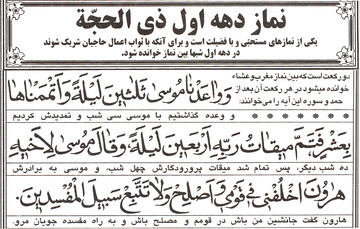 نماز دهه اول ذی الحجّة
یکی از نمازهای مستحبّی و با فضیلت است و برای آنکه با ثواب اعمال حاجیان شریک شوند
در دهه اول شبها بین نماز خوانده شود.
دو رکعت است که بین نماز مغرب و عشاء
خوانده میشود در هر رکعت آن بعد از
حمد و سوره این آیه را می‌خوانند:
وَوٰاعَدْنٰا مُوسىٰ ثَلٰثينَ لَيْلَةً وَاَتْمَمْنٰاهٰا
و وعده گذاشتیم با موسی سی شب و تمدیدش کردیم
بِعَشْرٍ فَتَمَّ ميقٰاتُ رَبِّهِ اَرْبَعينَ لَيْلَةً وَقٰالَ مُوسىٰ لِاَخيهِ
ده شب دیگر، پس تمام شد میقات پرورودگارش چهل شب، و موسی به برادرش
هٰرُونَ اخْلُفْنى فى قَوْمى وَاَصْلِحْ وَلٰا تَتَّبِعْ سَبيلَ الْمُفْسِدينَ.
هارون گفت جانشین من باش در قومم و مصلح باش و به راه مفسده جویان مرو.